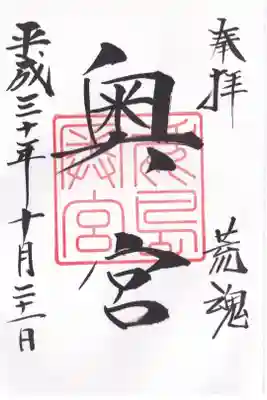 奉拝 荒魂
奥宮
鹿島
奥宮
平成三十年十月二十一日